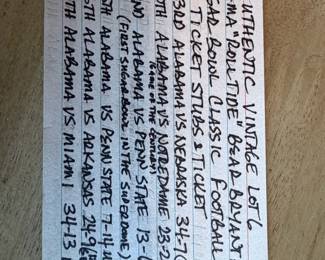 UTHENTIC VINTAGE LOT 6
MA "ROLL TIDE" BEAR BRYANT
GAR BOWL CLASSIC FOOTBALL
TICKET STUBS & TICKET
3RD ALABAMA VS NEBRASKA 34-7
TH ALABAMA VS NOTREDAME 23-2
(GAME OF THE CENTURY)
ND ALABAMA VS PENN STATE 13-
(FIRST SUGAR BOWL IN THE SUPERDOME)
TH ALABAMA VS PENN STATE 7-14
TH ALABAMA VS ARKANSAS 24-9
TH ALABAMA VS MIAMI 34-13